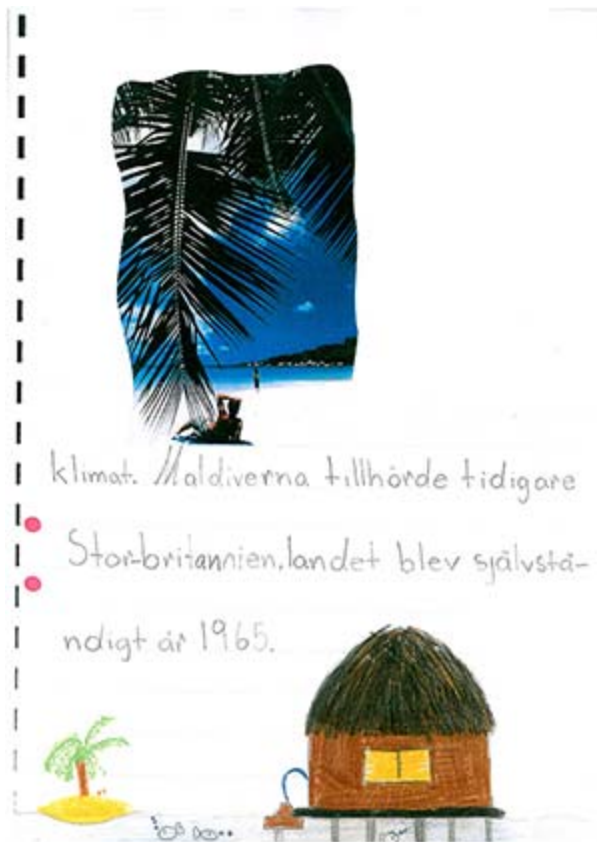 klimat. Maldiverna tillhörde tidigare
Stor-britannien.landet blev självstä-
ndigt år 1965.